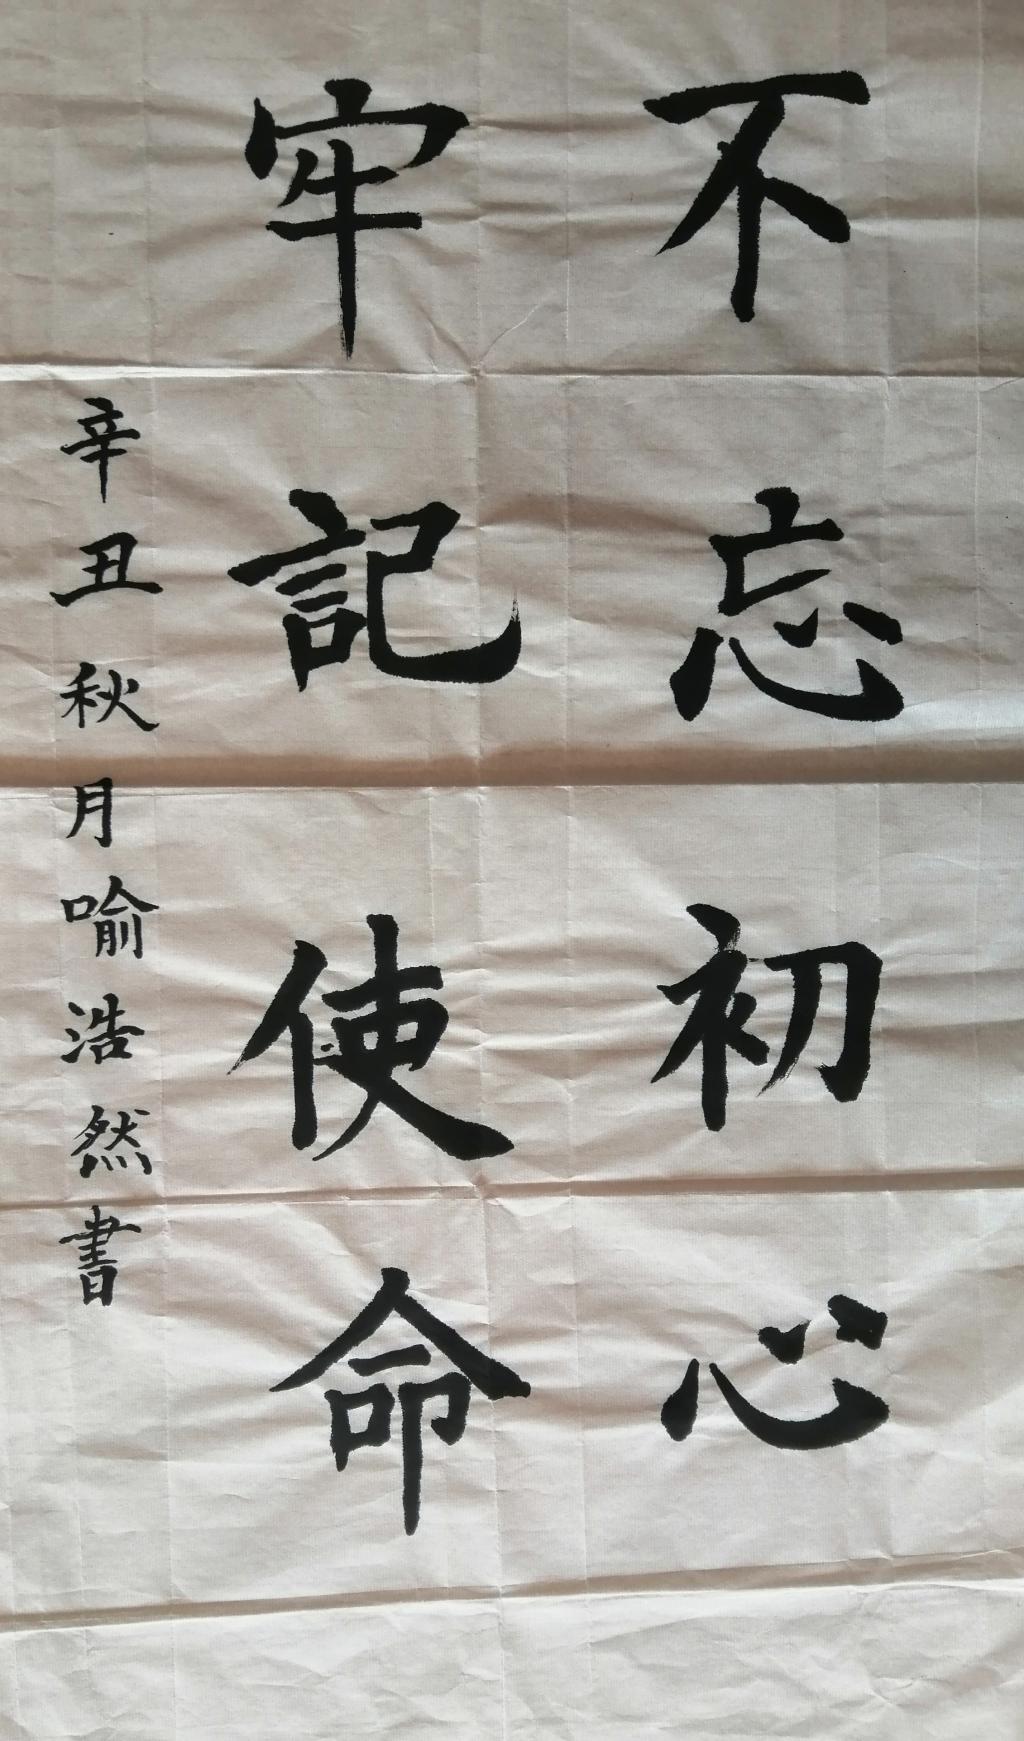 不忘初心
牢記使命
辛丑秋月喻浩然書